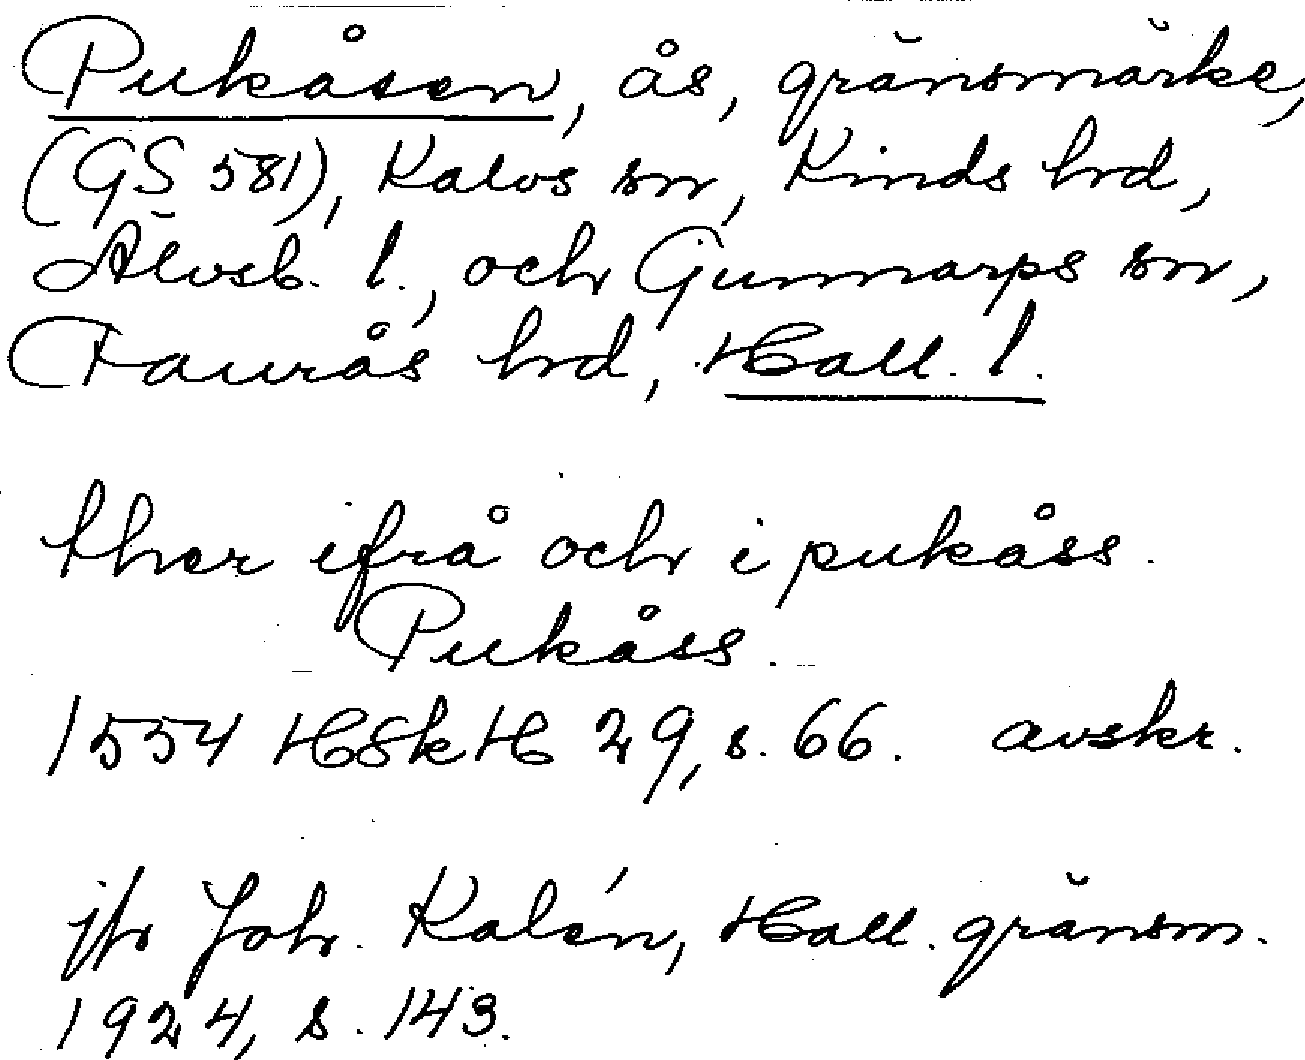 Pukåsen, ås, gränsmärke,
(GS 581), Kalvs sn, Kinds hd,
Älvsb. l., och Gunnarps sn,
Faurås hd, Hall. l.
ther ifrå och i pukåss.
Pukåss.
1554 HSkH 29, s. 66. avskr.
jfr Joh. Kalén, Hall. gränsm.
1924, s. 143.